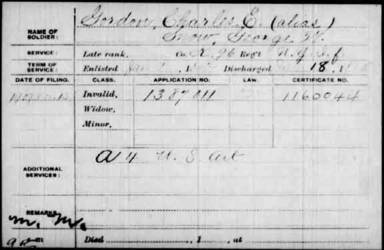 NAME OF SOLDIER: Gordon, Charles E. (alias)
Snow, George W.
SERVICE: Late rank, Co. K, 96 Reg't N.Y. Inf.
TERM OF SERVICE: Enlisted Discharged 18
DATE OF FILING. CLASS. APPLICATION NO. LAW. CERTIFICATE NO.
Invalid, 1387011 1160044
Widow,
Minor,
ADDITIONAL SERVICES: A 4 U.S. Art
REMARKS:
Died , 1 , at